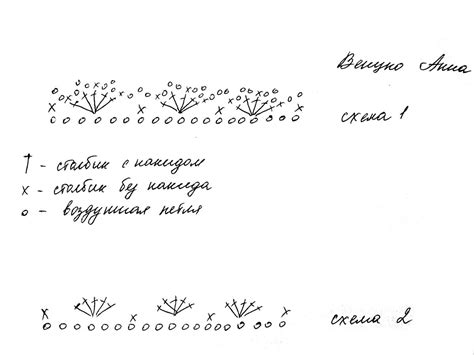 Венцко Анна
схема 1
† - столбик с накидом
x - столбик без накида
о - воздушная петля
схема 2